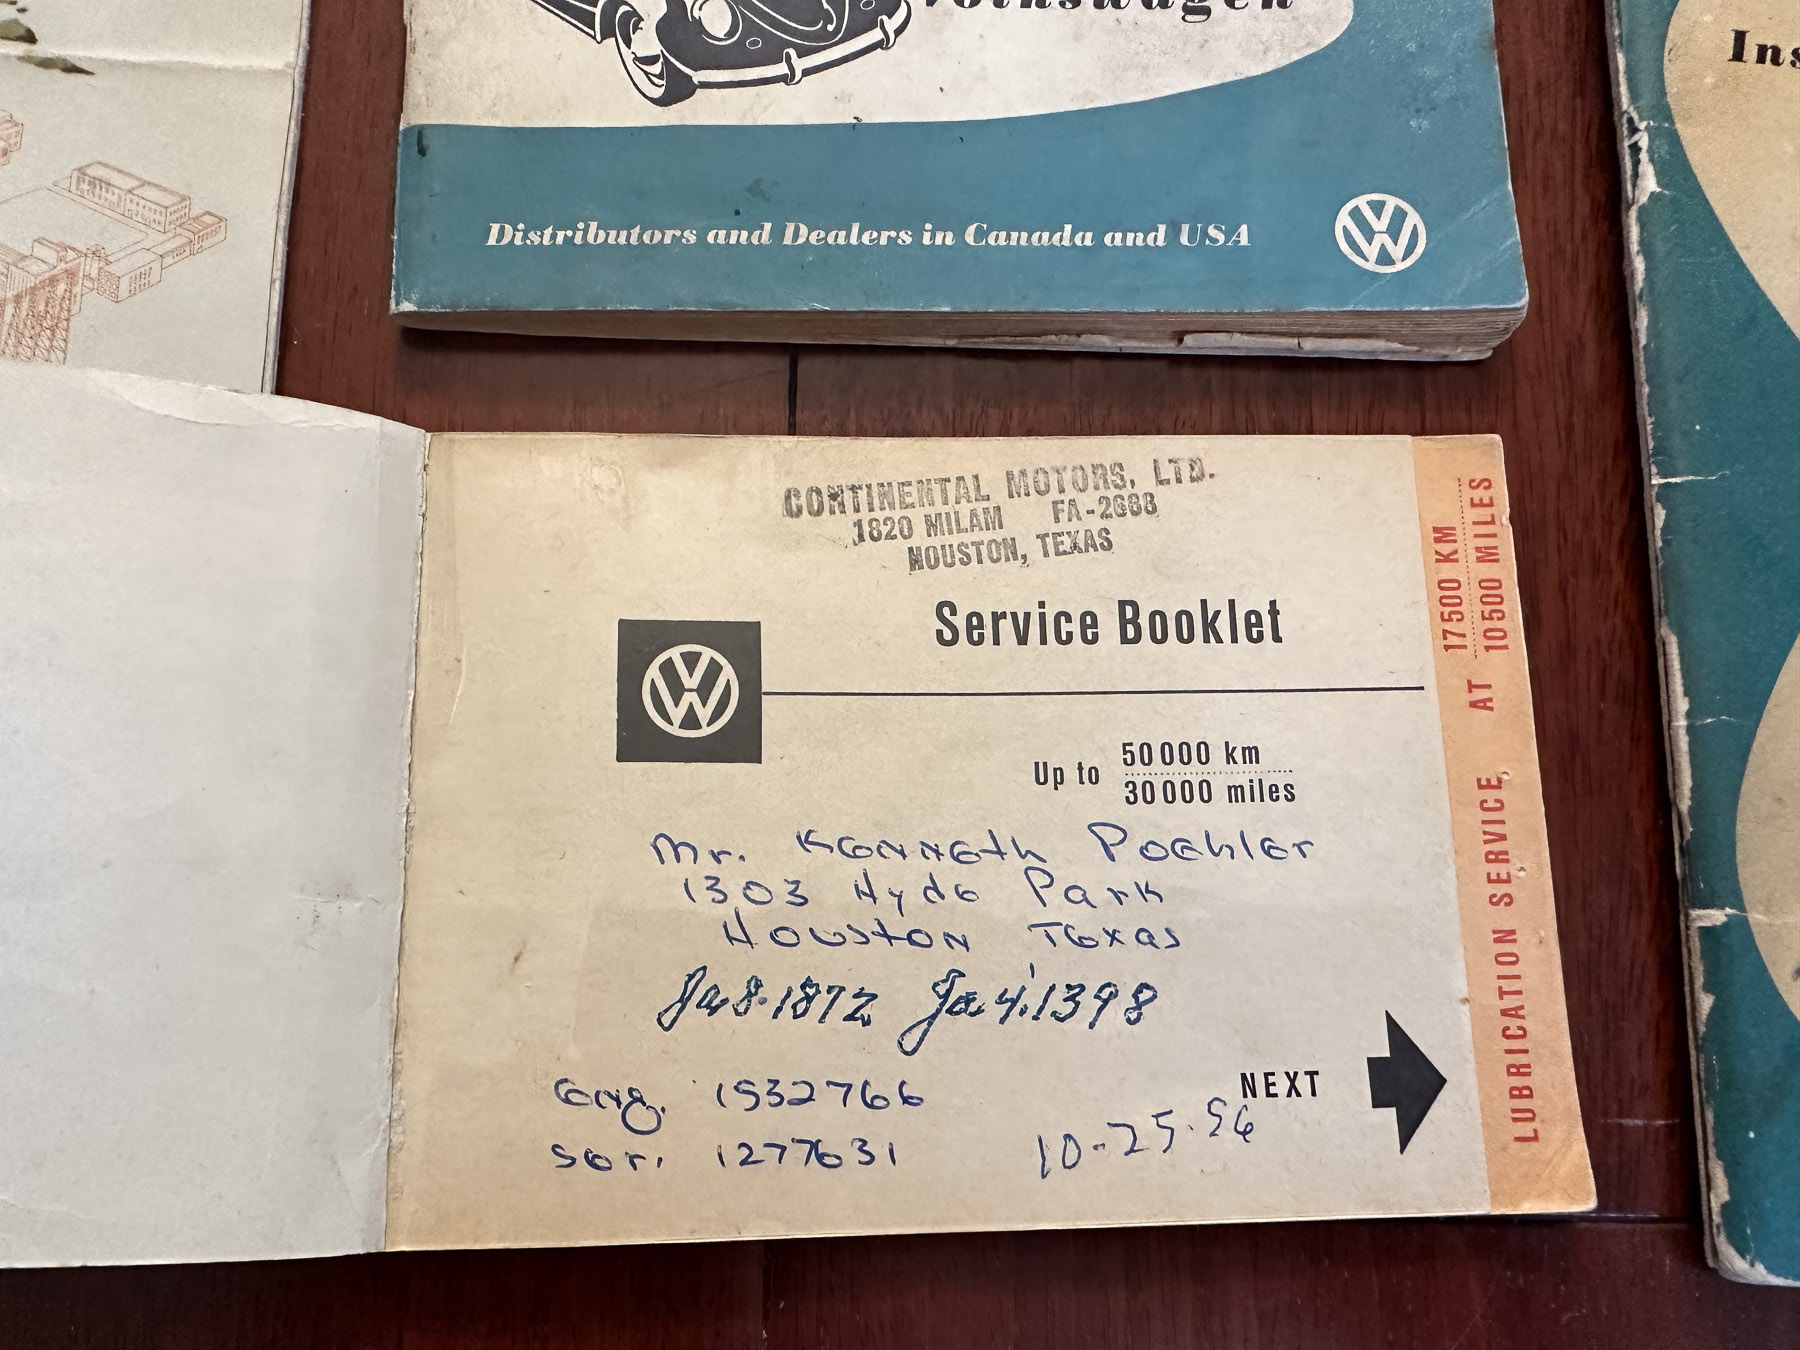 Volkswagen
Distributors and Dealers in Canada and USA
Ins
CONTINENTAL MOTORS, LTD.
1820 MILAM FA-2688
HOUSTON, TEXAS
Service Booklet
Up to 50 000 km
30 000 miles
Mr. Kenneth Poehler
1303 Hyde Park
Houston Texas
Ja 8.1872 Ja 4.1398
Eng. 1532766
Ser. 1277631
NEXT
10-25-56
LUBRICATION SERVICE, AT 17500 KM
10500 MILES